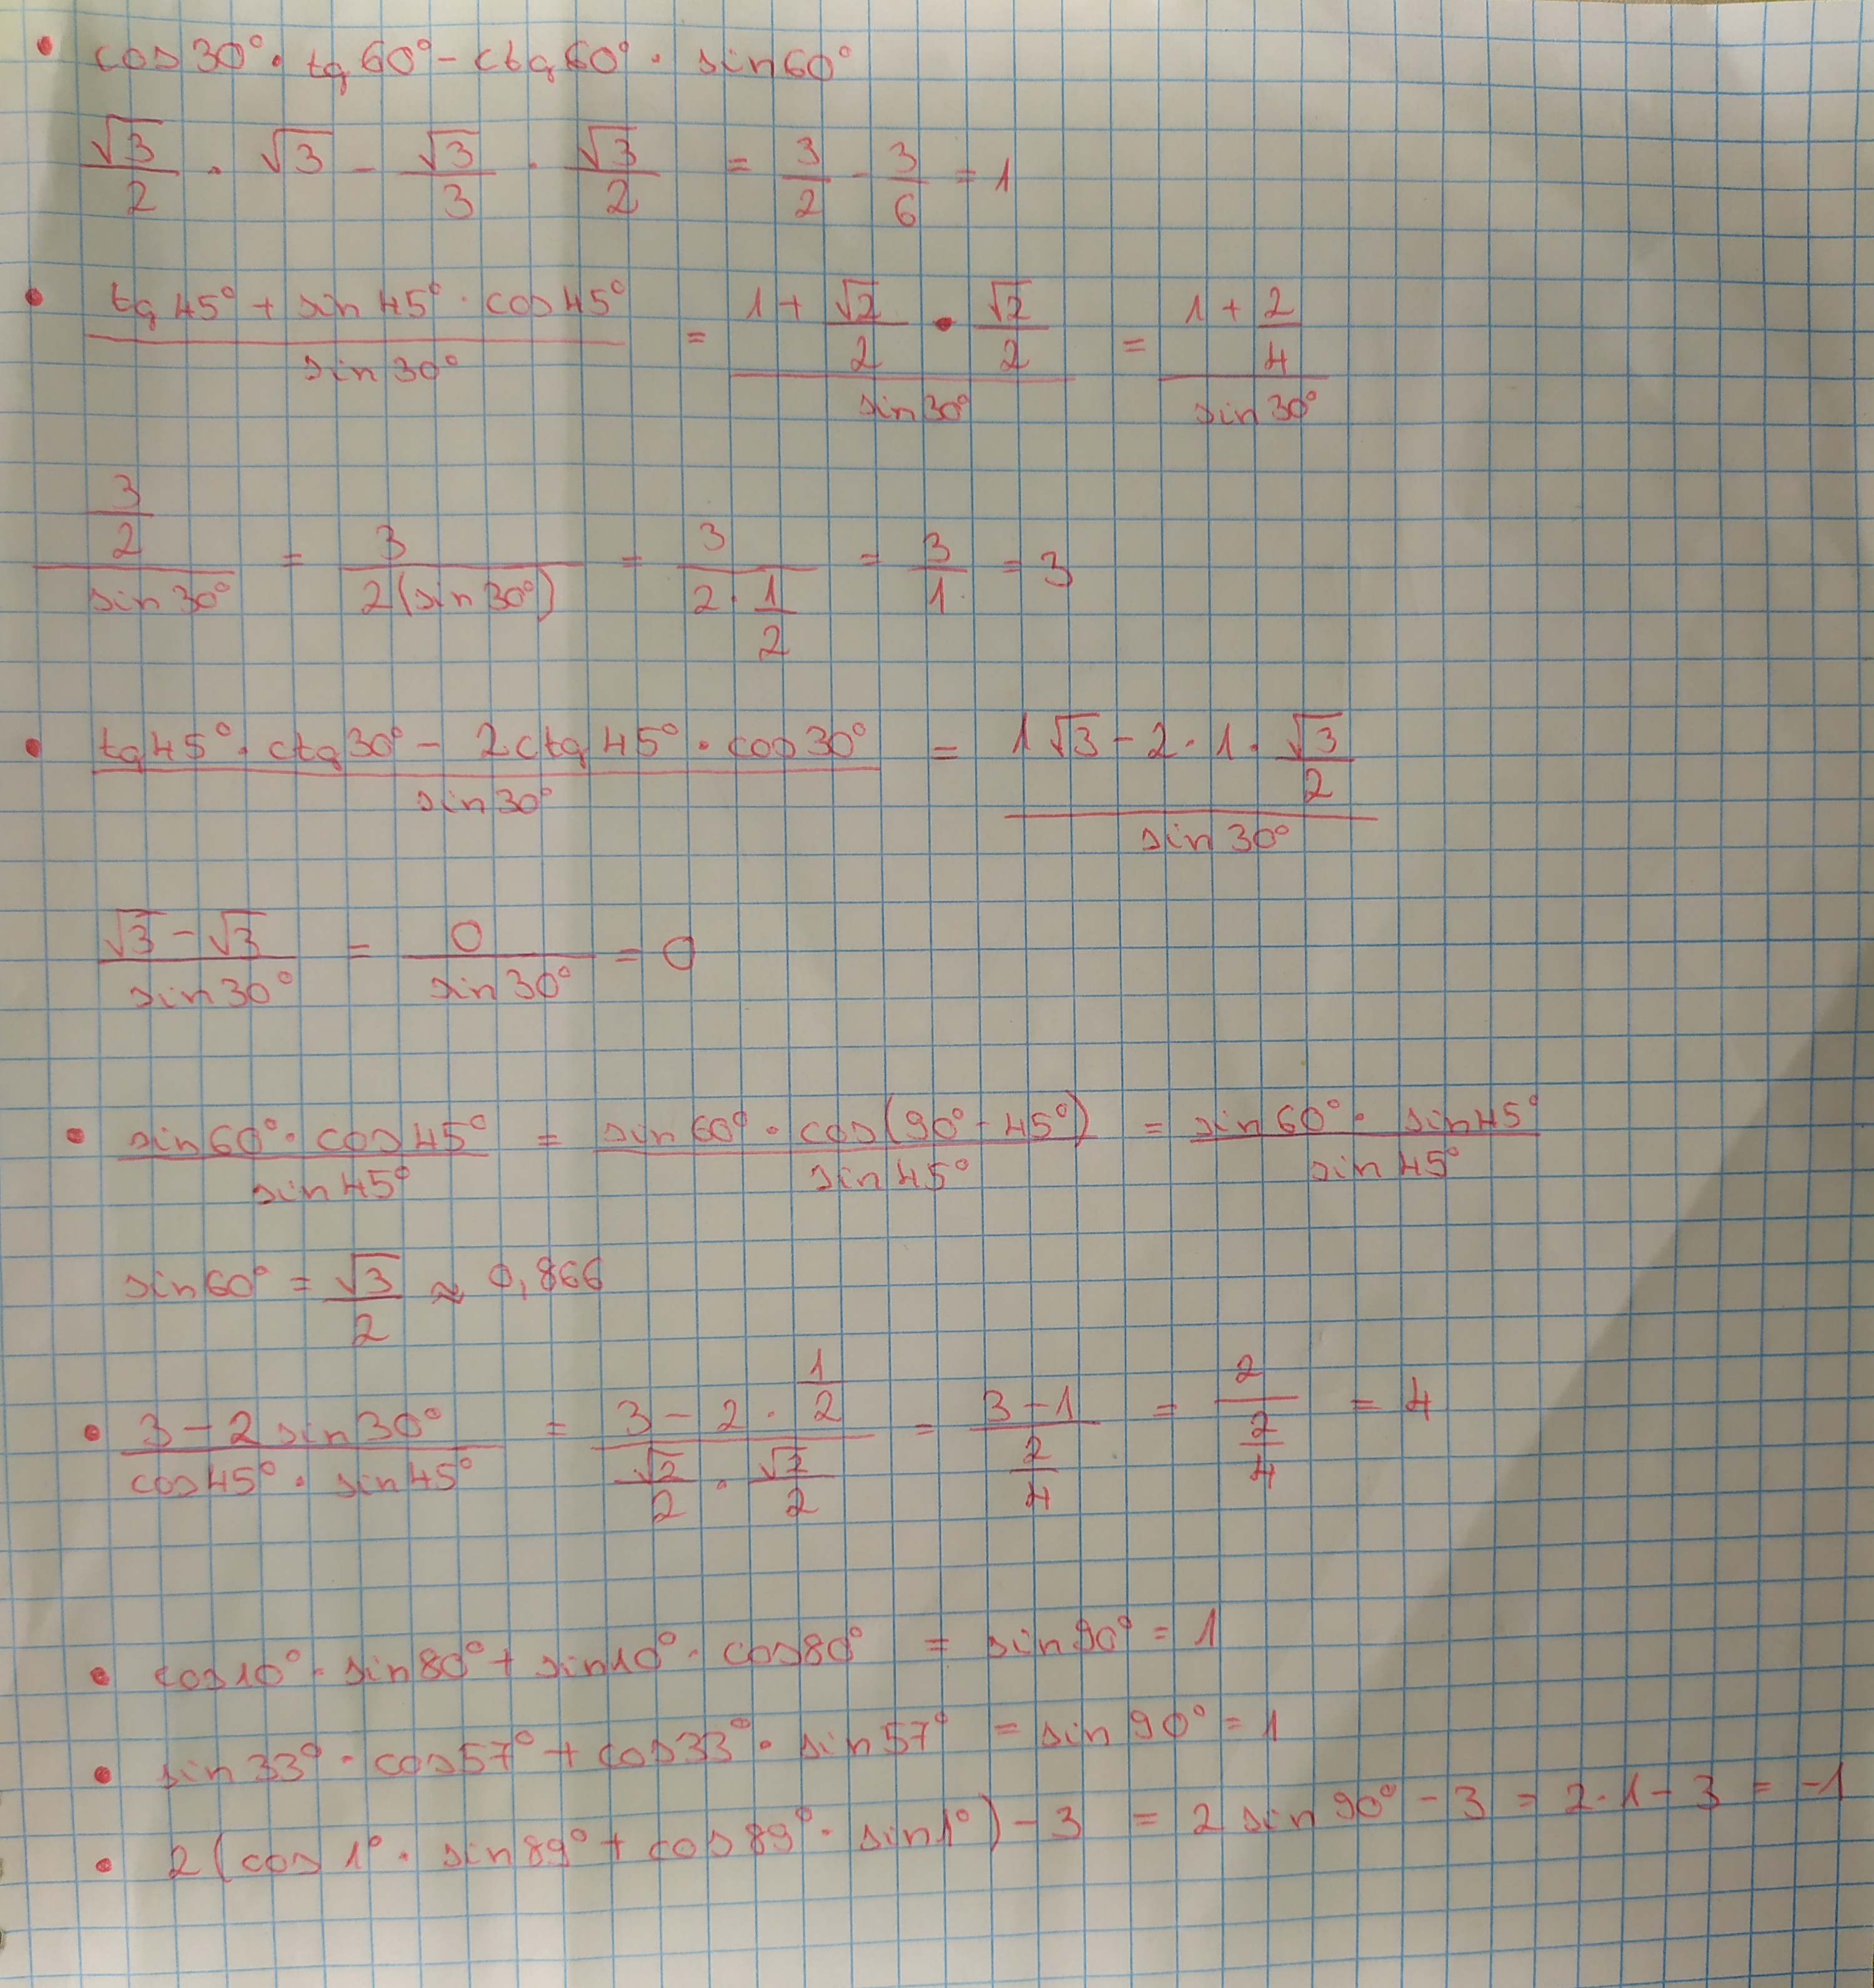 • cos30° · tg60° - ctg60° · sin60°
√3/2 · √3 - √3/3 · √3/2 = 3/2 - 3/6 = 1
• (tg45° + sin45° · cos45°)/(sin30°) = (1 + √2/2 · √2/2)/(sin30°) = (1 + 2/4)/(sin30°)
(3/2)/(sin30°) = 3/(2(sin30°)) = 3/(2 · 1/2) = 3/1 = 3
• (tg45° · ctg30° - 2ctg45° · cos30°)/(sin30°) = (1√3 - 2 · 1 · √3/2)/(sin30°)
(√3 - √3)/(sin30°) = 0/(sin30°) = 0
• (sin60° · cos45°)/(sin45°) = (sin60° · cos(90° - 45°))/(sin45°) = (sin60° · sin45°)/(sin45°)
sin60° = √3/2 ≈ 0,866
• (3 - 2sin30°)/(cos45° · sin45°) = (3 - 2 · 1/2)/(√2/2 · √2/2) = (3 - 1)/(2/4) = 2/(2/4) = 4
• cos10° · sin80° + sin10° · cos80° = sin90° = 1
• sin33° · cos57° + cos33° · sin57° = sin90° = 1
• 2(cos1° · sin89° + cos89° · sin1°) - 3 = 2sin90° - 3 = 2·1 - 3 = -1